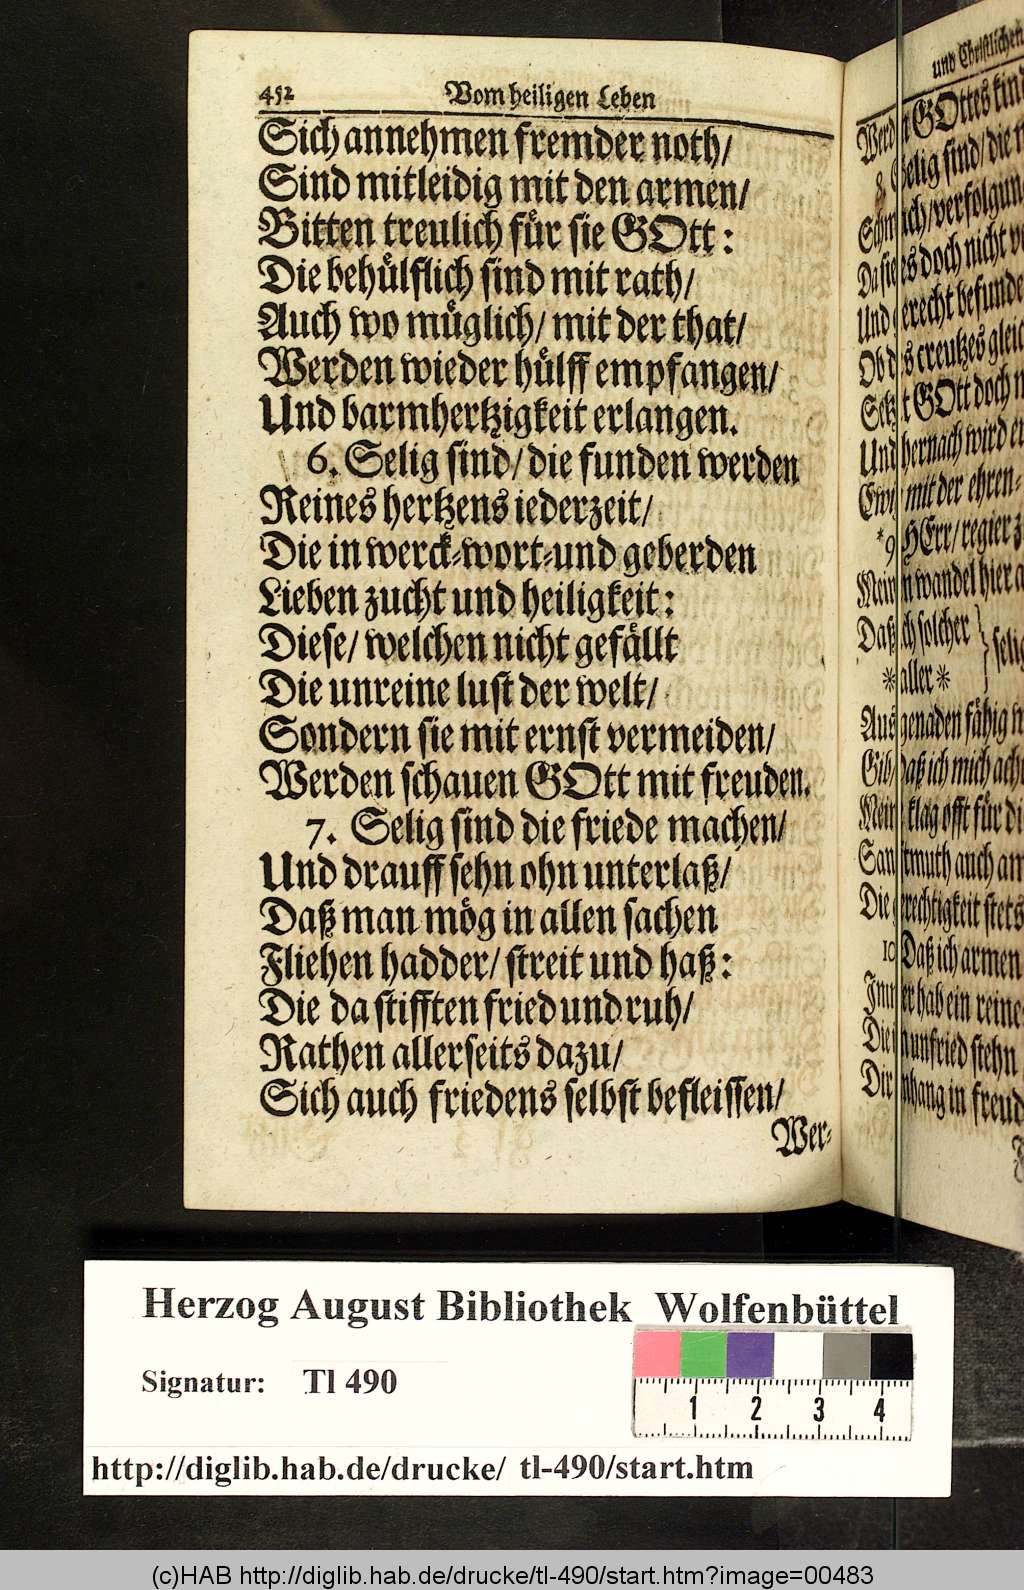 452 Vom heiligen Leben
Sich annehmen fremder noth/
Sind mitleidig mit den armen/
Bitten treulich für sie GOtt:
Die behülflich sind mit rath/
Auch wo müglich/ mit der that/
Werden wieder hülff empfangen/
Und barmhertzigkeit erlangen.
6. Selig sind/ die funden werden
Reines hertzens iederzeit/
Die in werck-wort-und geberden
Lieben zucht und heiligkeit:
Diese/ welchen nicht gefällt
Die unreine lust der welt/
Sondern sie mit ernst vermeiden/
Werden schauen GOtt mit freuden.
7. Selig sind die friede machen/
Und drauff sehn ohn unterlaß/
Daß man mög in allen sachen
Fliehen hadder/ streit und haß:
Die da stifften fried und ruh/
Rathen allerseits dazu/
Sich auch friedens selbst befleissen/
Wer-
und Christlichen
GOttes
selig sind/ die
verfolgun
doch nicht
befunde
creutzes
GOtt doch
Und hernach wird
mit der ehren-
9 HErr/ regier
wandel hier
Daß ich solcher
* aller *
selig
Aus genaden fähig
Gib/ daß ich mich
klag offt für
Sanfftmuth auch
Die gerechtigkeit stets
10 Daß ich armen
Immer hab ein reine
unfried stehn
Dir anhang in freud
Herzog August Bibliothek Wolfenbüttel
Signatur: Tl 490
1 2 3 4
http://diglib.hab.de/drucke/ tl-490/start.htm
(c)HAB http://diglib.hab.de/drucke/tl-490/start.htm?image=00483